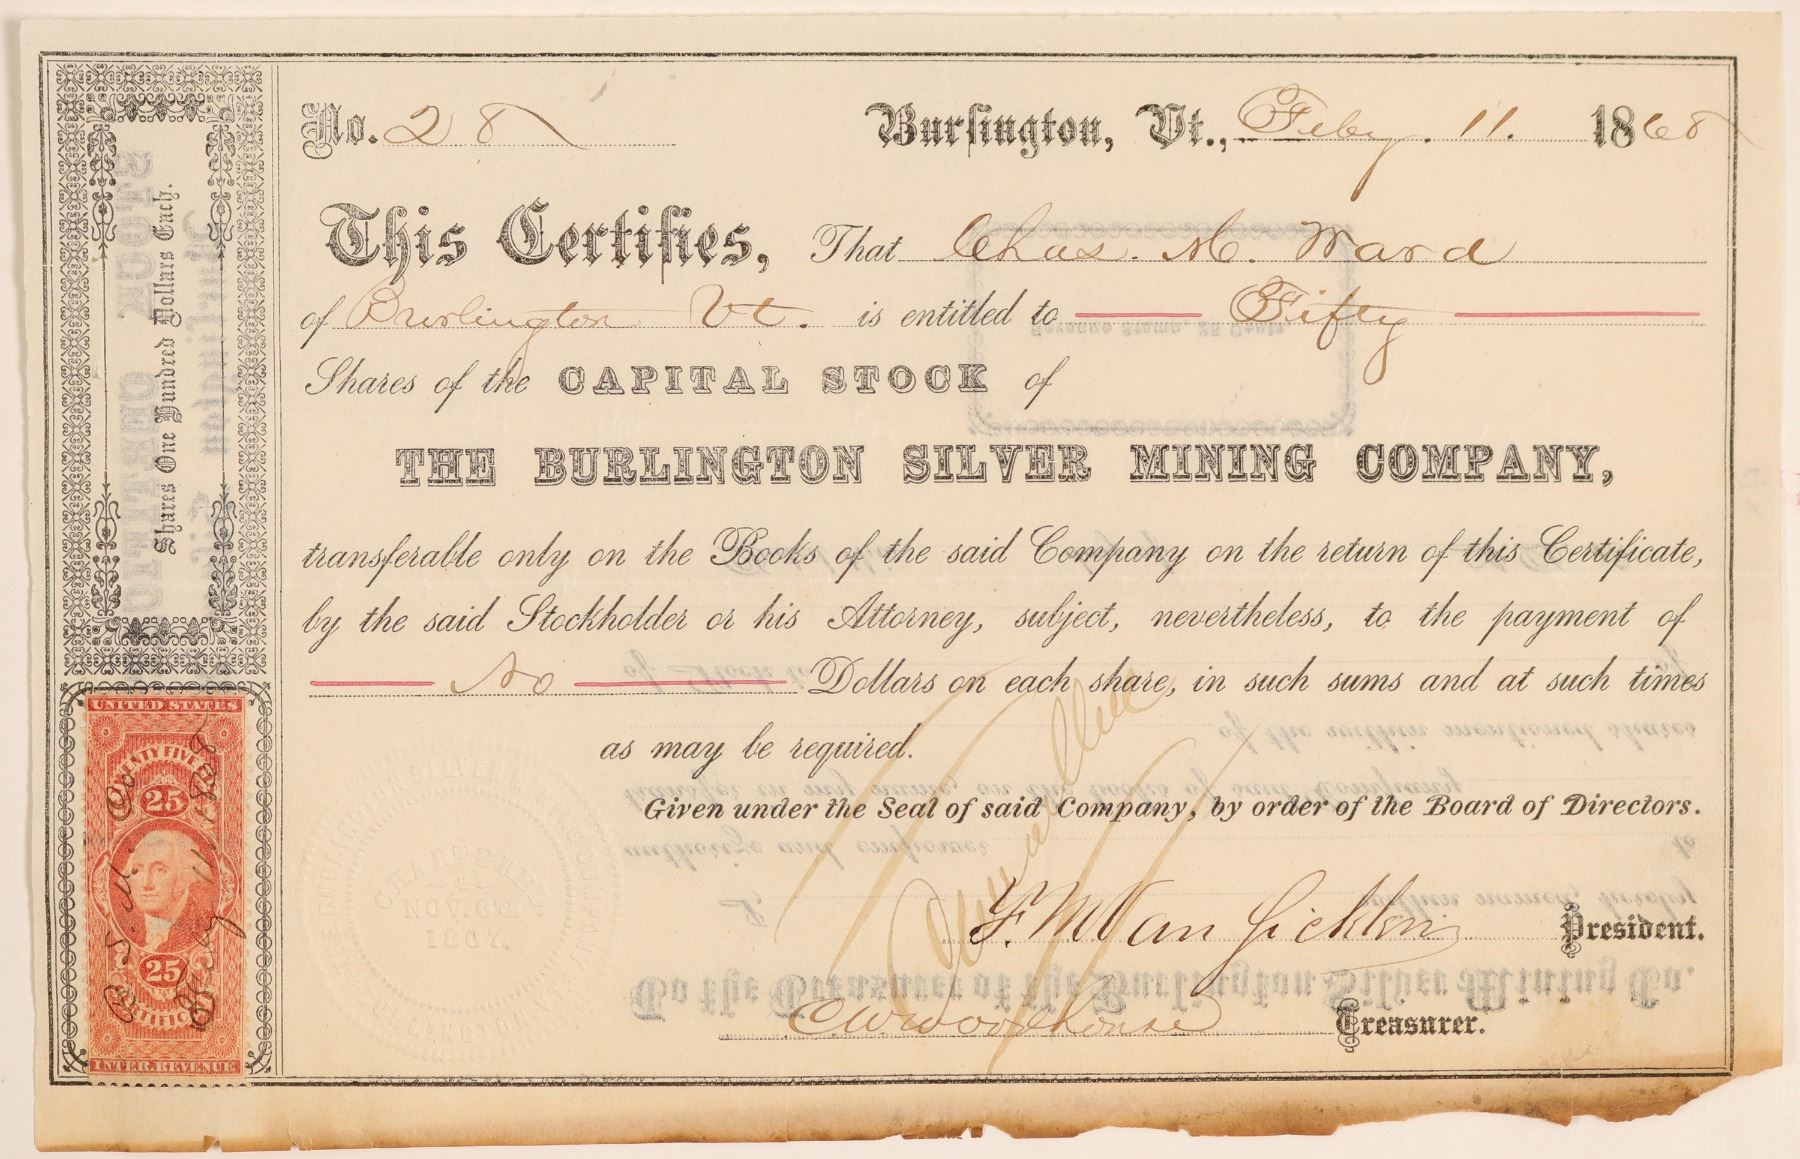 No. 28 Burlington, Vt., Feby. 11. 1868
This Certifies, That Chas. M. Ward
of Burlington Vt. is entitled to Fifty
Shares of the CAPITAL STOCK of
THE BURLINGTON SILVER MINING COMPANY,
transferable only on the Books of the said Company on the return of this Certificate,
by the said Stockholder or his Attorney, subject, nevertheless, to the payment of
No Dollars on each share, in such sums and at such times
as may be required.
Given under the Seal of said Company, by order of the Board of Directors.
Cancelled
F. M Van Sicklen President.
C W Woodhouse Treasurer.
Shares One Hundred Dollars Each.
UNITED STATES
TWENTY FIVE
25
25
CERTIFIC
INTER. REVENUE
B. S. M. Co
Feby 11 1868
CHARTERED
NOV. 6TH
1867.